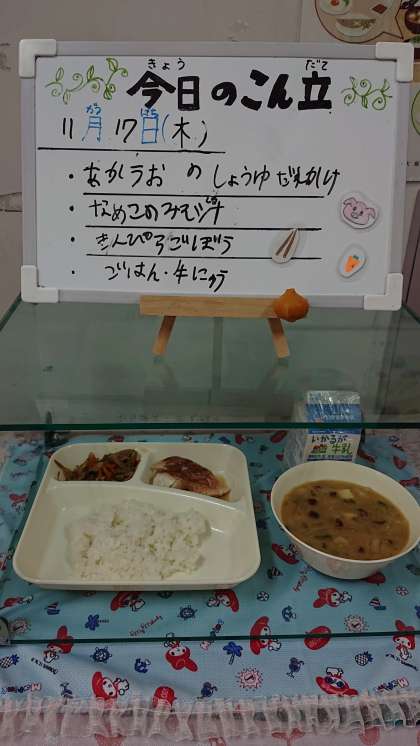 きょう だて
今日のこん立
がつ にち
11月17日(木)
・あかうおのしょうゆだれかけ
・なめこのみそ汁
・きんぴらごぼう
・ごはん・牛にゅう
いかるが
牛乳